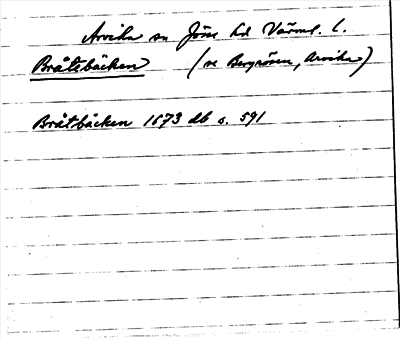 Arvika sn Jösse hd Värml. l.
Bråtsbäcken (se Bergrösen, Arvika)
Bråtbäcken 1673 db s. 591